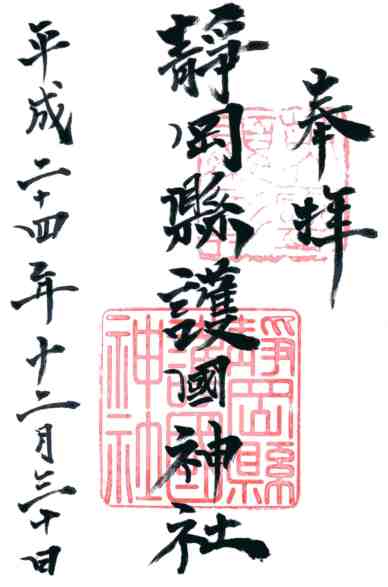 奉拝
靜岡縣護國神社
平成二十四年十二月三十日
靜岡縣
護國
神社